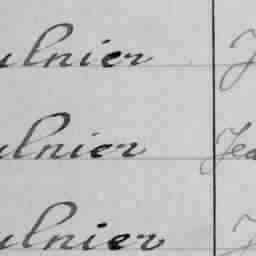 ulnier J
ulnier Jea
ulnier J